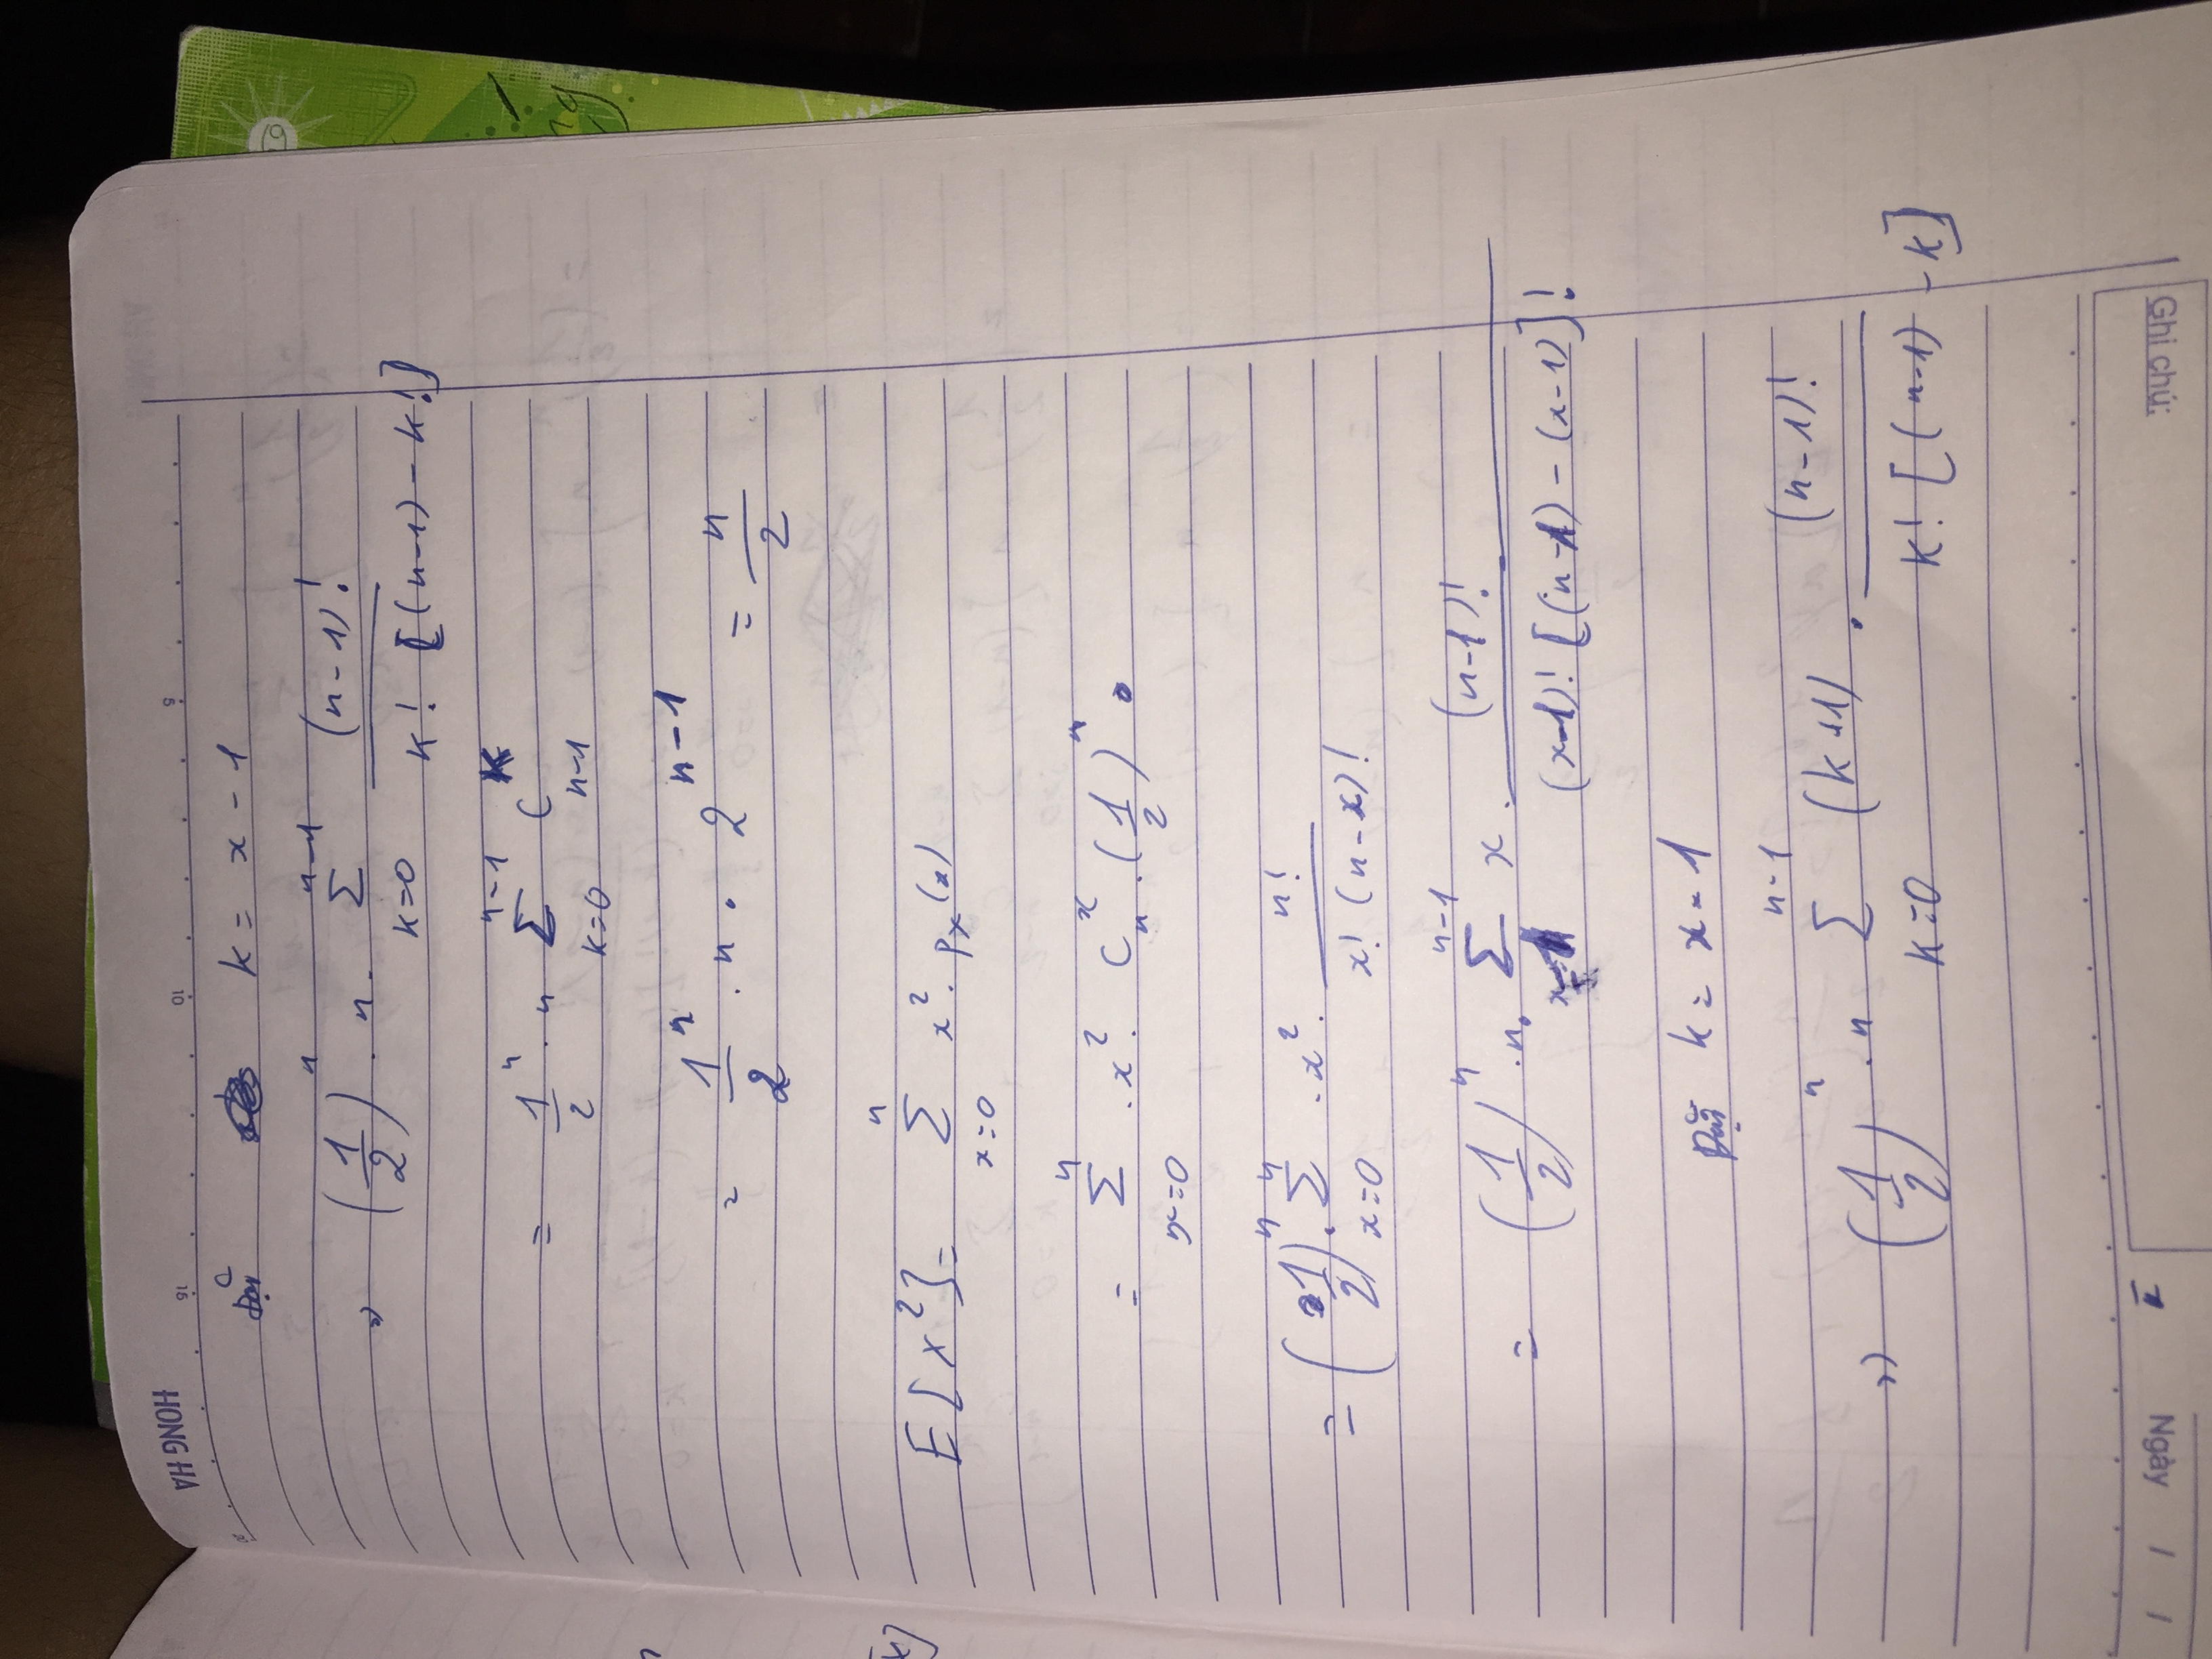 HONG HA 15 10 5
Đặt k = x - 1
=> (1/2)^n . n . Σ_{k=0}^{n-1} (n-1)! / k! [(n-1) - k!]
= 1/2^n . n Σ_{k=0}^{n-1} C_{n-1}^k
= 1/2^n . n . 2^{n-1} = n/2
E[X^2] = Σ_{x=0}^{n} x^2 . p_X(x)
= Σ_{x=0}^{n} . x^2 . C_n^x . (1/2)^n .
= (1/2)^n . Σ_{x=0}^{n} . x^2 . n! / x! (n-x)!
= (1/2)^n . n . Σ_{x=1}^{n-1} x . (n-1)! / (x-1)! [(n-1) - (x-1)]!
Đặt k = x - 1
=> (1/2)^n . n Σ_{k=0}^{n-1} (k+1) . (n-1)! / k! [(n-1) - k]
Ngày / /
Ghi chú: